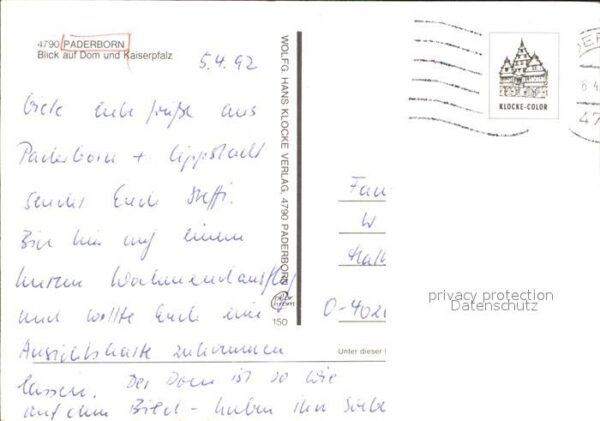 4790 PADERBORN
Blick auf Dom und Kaiserpfalz
5.4.92
liebe Grüße aus
Paderborn + Lippstadt
sendet Euch Steffi.
Bin hier auf einem
kurzen Wochenendausflug
und wollte Euch eine
Ansichtskarte zukommen
lassen. Der Dom ist so wie
auf dem Bild - haben ihn
WOLFG. HANS KLOCKE VERLAG, 4790 PADERBORN
150
KLOCKE-COLOR
Fam
W.
O-402
privacy protection
Datenschutz
Unter dieser